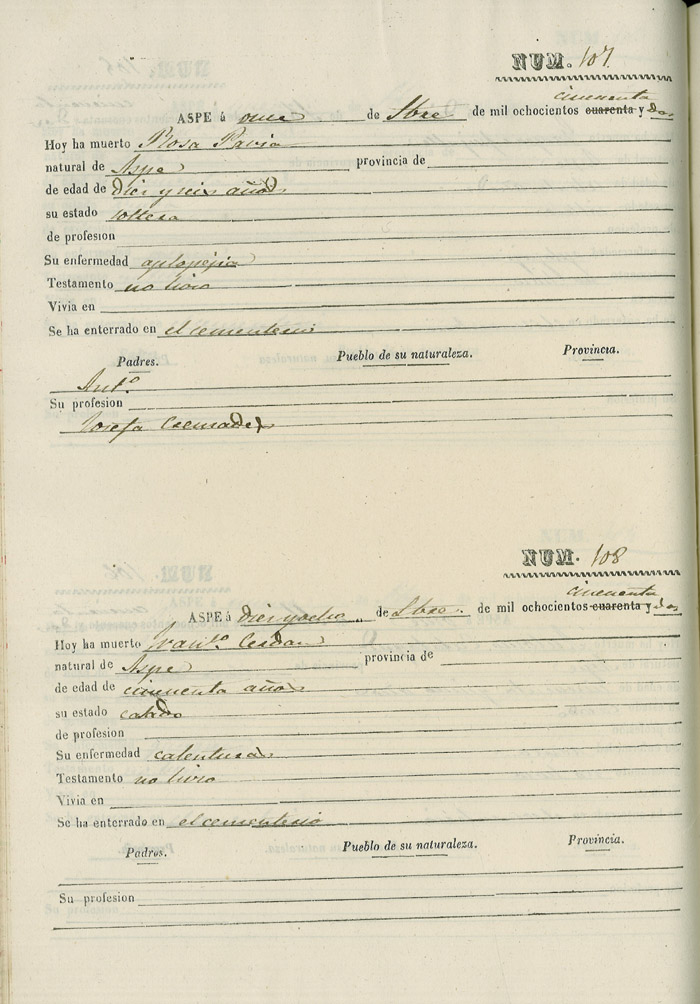 NUM. 107
cincuenta
ASPE á once de Sbre de mil ochocientos cuarenta y dos
Hoy ha muerto Rosa Pavia
natural de Aspe provincia de
de edad de diez y seis años
su estado soltera
de profesion
Su enfermedad
Testamento no hizo
Vivia en
Se ha enterrado en el cementerio
Padres. Pueblo de su naturaleza. Provincia.
Ant.o
Su profesion
Josefa
NUM. 108
cincuenta
ASPE á diez y ocho de Sbre de mil ochocientos cuarenta y dos
Hoy ha muerto Cerdan
natural de Aspe provincia de
de edad de cincuenta años
su estado casado
de profesion
Su enfermedad calenturas
Testamento no hizo
Vivia en
Se ha enterrado en el cementerio
Padres. Pueblo de su naturaleza. Provincia.
Su profesion